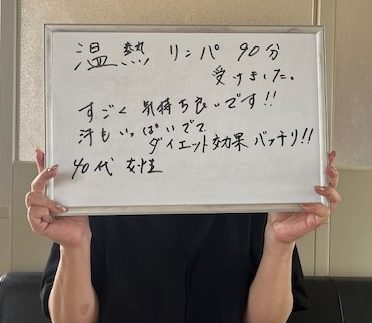 温熱 リンパ 90分
受けました。
すごく 気持ち良いです!!
汗もいっぱいでて
ダイエット効果 バッチリ!!
40代 女性